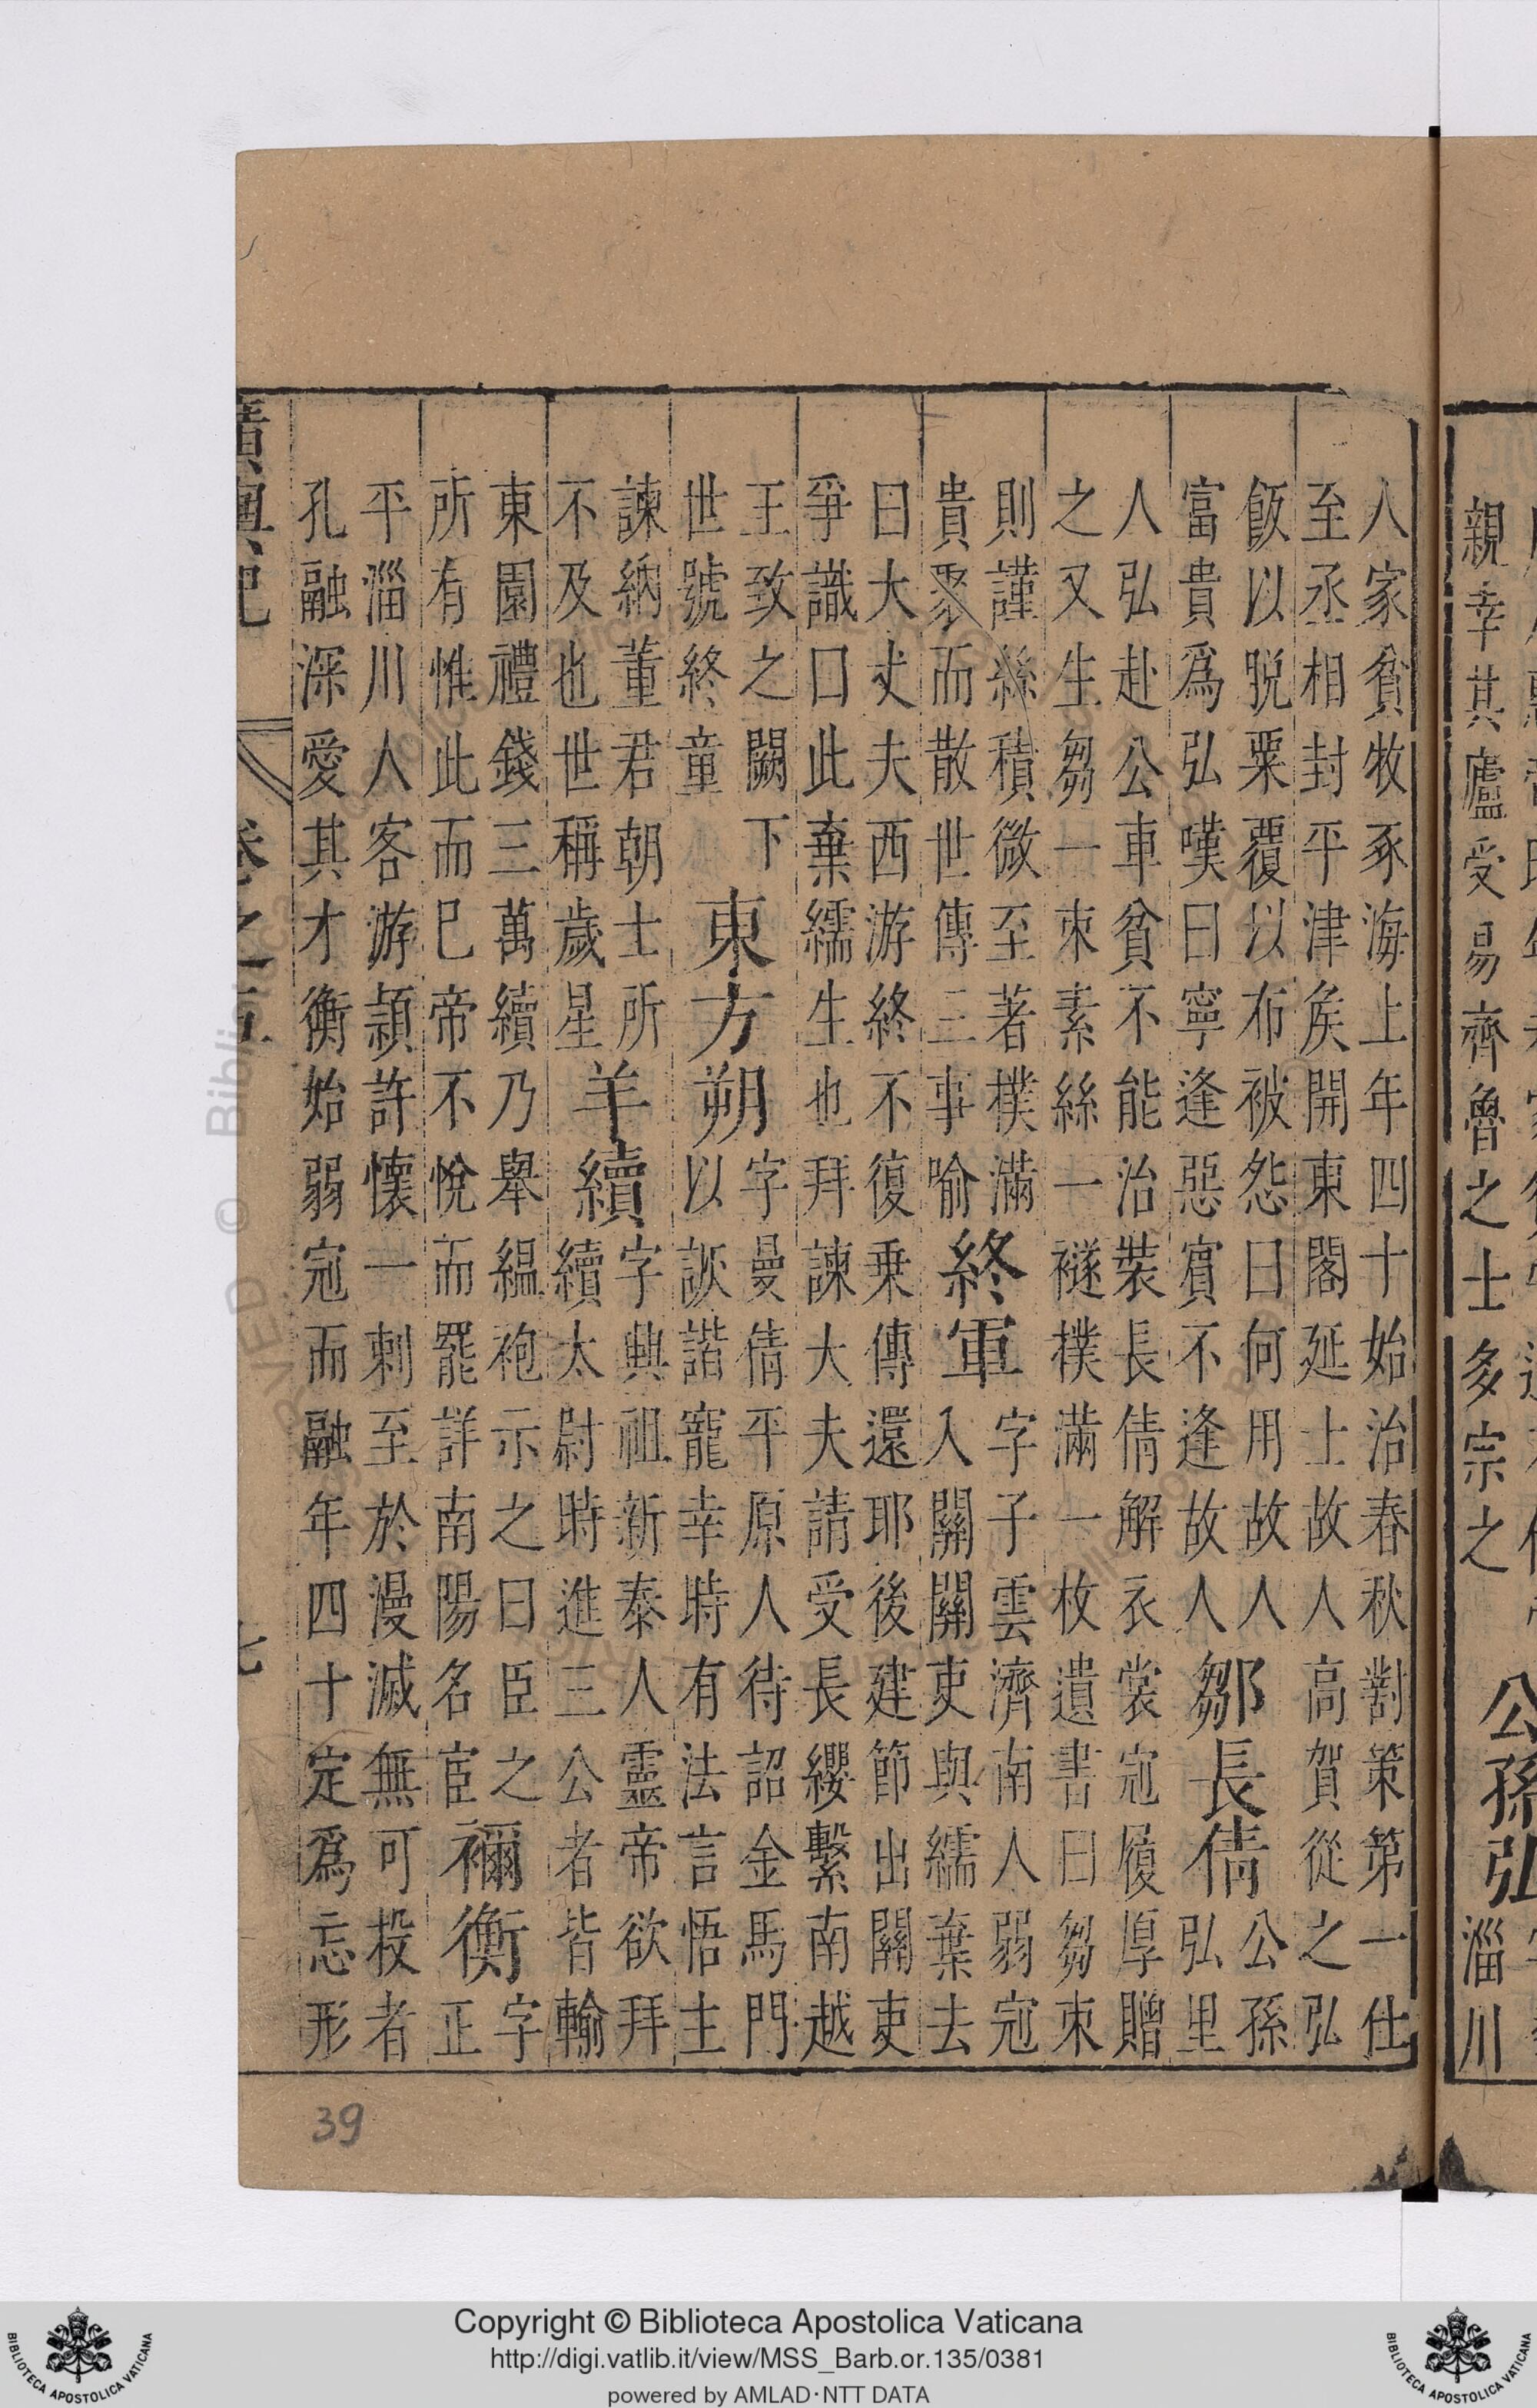 親幸其廬受易齊魯之士多宗之
公孫弘
淄川
人家貧牧豕海上年四十始治春秋對策第一仕
至丞相封平津矦開東閣延士故人高賀從之弘
飯以脫粟覆以布被怨曰何用故人
富貴爲弘嘆曰寧逢惡賓不逢故人
鄒長倩
公孫
弘里
人弘赴公車貧不能治裝長倩解衣裳冠履厚贈
之又生芻一束素絲一襚撲滿一枚遺書曰芻束
則謹絲積微至著撲滿
貴聚而散世傳三事喻
終軍
字子雲濟南人弱冠
入關關吏與繻棄去
曰大丈夫西游終不復乗傳還耶後建節出關吏
爭識曰此棄繻生也拜諫大夫請受長纓繫南越
王致之闕下
世號終童
東方朔
字曼倩平原人待詔金馬門
以詼諧寵幸時有法言悟主
諫納董君朝士所
不及也世稱歲星
羊續
字興祖新泰人靈帝欲拜
續太尉時進三公者皆輸
東園禮錢三萬續乃舉緼袍示之曰臣之
所有惟此而巳帝不悅而罷詳南陽名宦
禰衡
字
正
平淄川人客游潁許懷一刺至於漫滅無可投者
孔融深愛其才衡始弱冠而融年四十定爲忘形
廣輿記
卷之五
七
39
Copyright © Biblioteca Apostolica Vaticana
http://digi.vatlib.it/view/MSS_Barb.or.135/0381
powered by AMLAD·NTT DATA
BIBLIOTECA APOSTOLICA VATICANA
BIBLIOTECA APOSTOLICA VATICANA